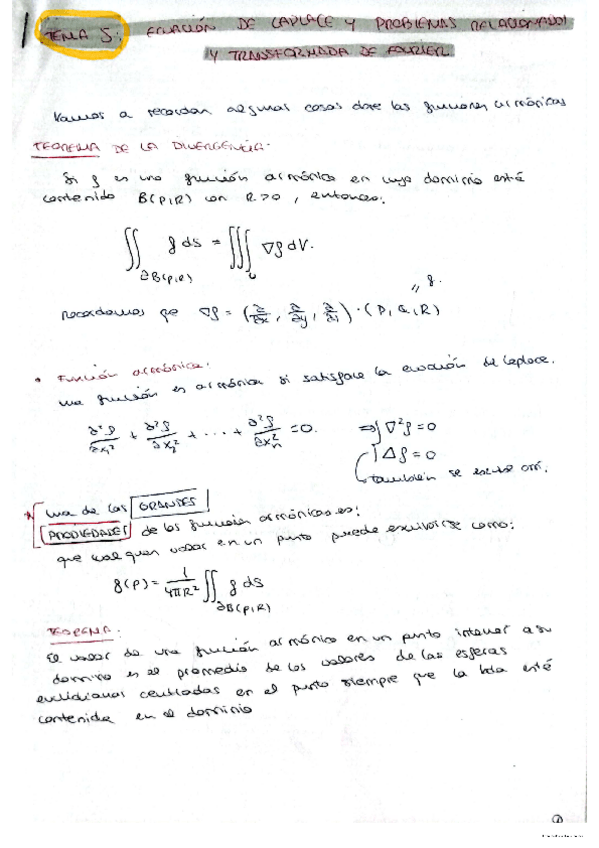 TEMA 5: ECUACIÓN DE LAPLACE Y PROBLEMAS RELACIONADOS
Y TRANSFORMADA DE FOURIER
Vamos a recordar algunas cosas sobre las funciones armónicas
TEOREMA DE LA DIVERGENCIA.
Si f es una función armónica en cuyo dominio esté
contenido B(P,R) con R>0, entonces:
∬_{∂B(P,R)} f ds = ∭ ∇f dV.
recordamos que ∇f = (∂/∂x, ∂/∂y, ∂/∂z) · (P, Q, R) " f.
• Función armónica:
una función es armónica si satisface la ecuación de Laplace.
∂²f/∂x₁² + ∂²f/∂x₂² + ... + ∂²f/∂xₙ² = 0. ⇒ ∇²f = 0
Δf = 0
también se escribe así.
* una de las GRANDES
PROPIEDADES de las función armónicas es:
que cualquier valor en un punto puede escribirse como:
f(P) = 1/4πR² ∬_{∂B(P,R)} f ds
TEOREMA:
El valor de una función armónica en un punto interior a su
dominio es el promedio de los valores de las esferas
euclidianas centradas en el punto siempre que la bola esté
contenida en el dominio
1